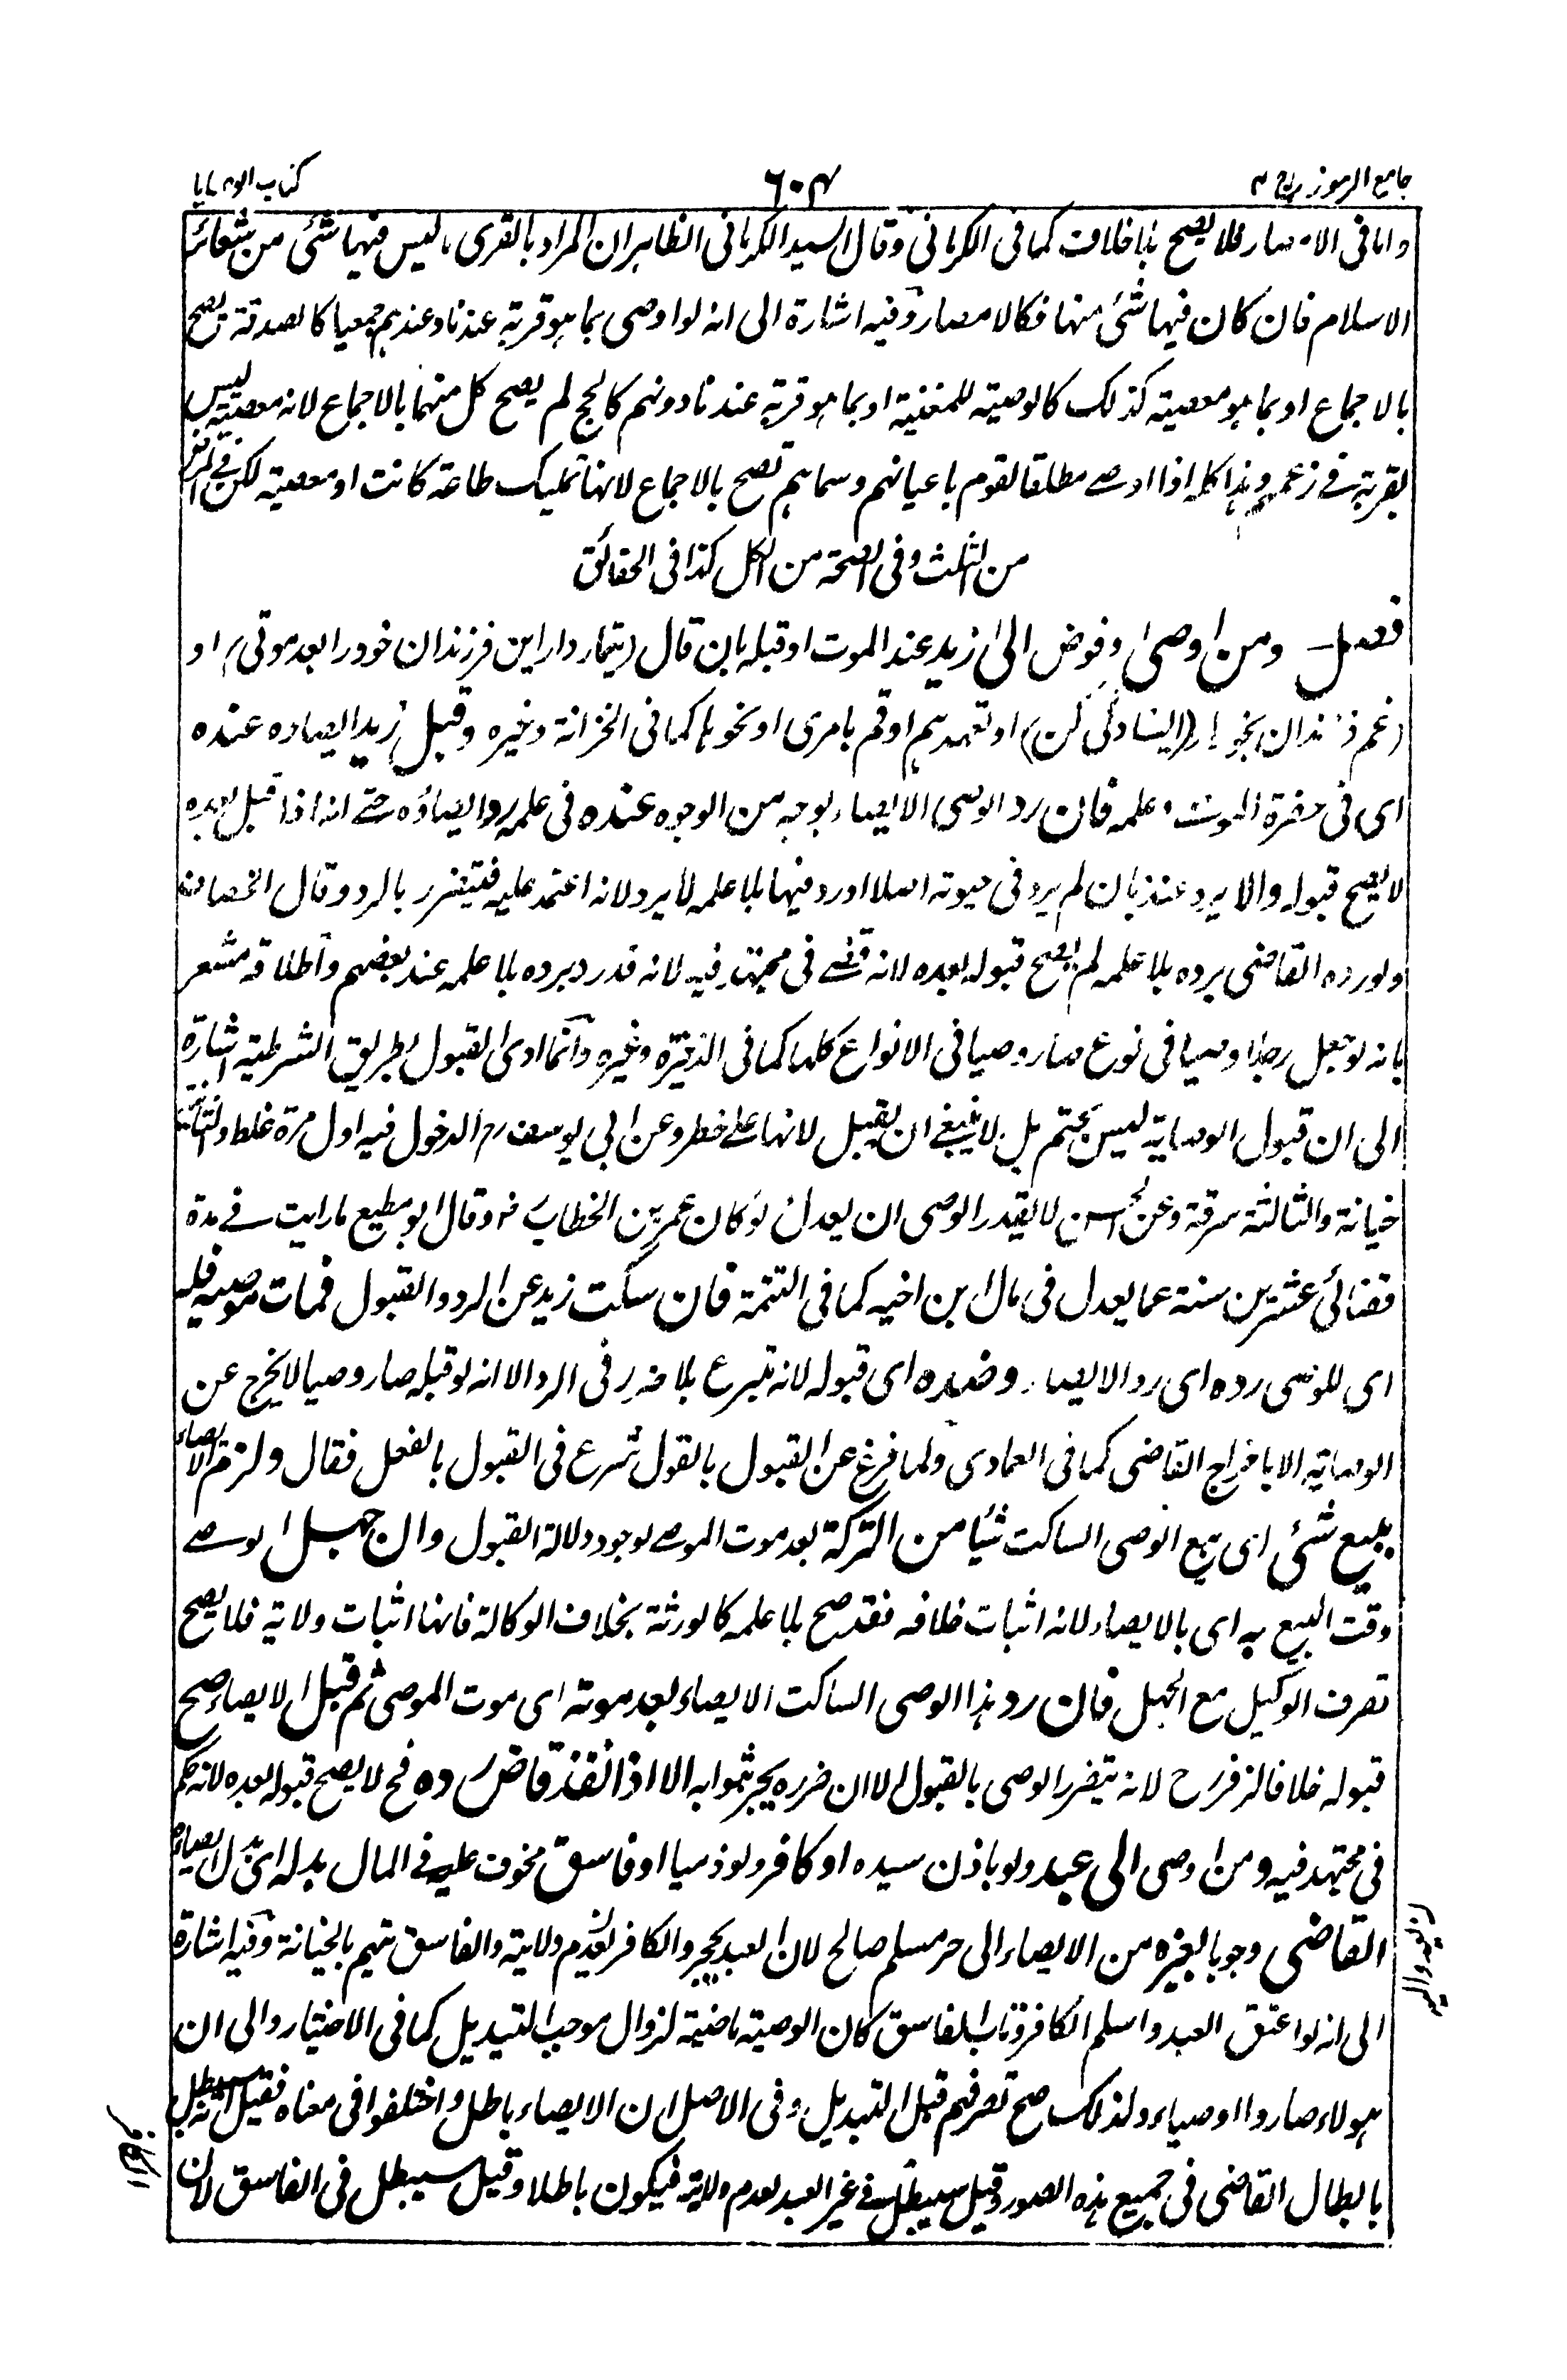 جامع الرموز ج ٢
٦٠٣
كتاب الوصايا
واما فى الامصار فلا يصح بلا خلاف كما فى الكرمانى وقال السيد الكرمانى الظاهر ان المراد بالقرى ما ليس فيها شئ من شعائر
الاسلام فان كان فيها شئ منها فكالامصار وفيه اشارة الى انه لو اوصى بما هو قربة عندنا وعندهم جميعا كالصدقة تصح
بالاجماع او بما هو معصية كذلك كالوصية للمغنية او بما هو قربة عندنا دونهم كالحج لم يصح كل منهما بالاجماع لانه معصية ليس
بقربة فى زعمهم وهذا كله اذا اوصى مطلقا لقوم باعيانهم وسماهم تصح بالاجماع لانها تمليك طاعة كانت او معصية لكن فى المرض
من الثلث وفى الصحة من الكل كذا فى الحقائق
فصل ومن اوصى وفوض الى زيد عند الموت او قبله بان قال (تيمار دار اين فرزندان خود را بعد موتى) او
(غم فرزندان بخور) او (ايشان ولى كن) او تعهدهم او قم بامرى او نحوها كما فى الخزانة وغيره وقبل زيد ايصاءه عنده
اى فى حضرة الموت وعلمه فان رد الوصى الايصاء بوجه من الوجوه عنده فى علمه رد ايصاؤه حتى انه اذا قبل بعده
لا يصح قبوله والا يرد عنده بان لم يرد فى حيوته اصلا او رد فيها بلا علمه لا يرد لانه اعتمد عليه فيتضرر بالرد وقال الخصاف
ولو رده القاضى برده بلا علمه لم يصح قبوله بعده لانه قضى فى مجتهد فيه لانه قد رد برده بلا علمه عند بعضهم واطلاقه مشعر
بانه لو جعل رجلا وصيا فى نوع صار وصيا فى الانواع كلها كما فى الذخيرة وغيره وانما ادى القبول بطريق الشرطية اشارة
الى ان قبول الوصاية ليس بحتم بل لا ينبغى ان يقبل لانها على خطر وعن ابى يوسف رح الدخول فيه اول مرة غلط والثانية
خيانة والثالثة سرقة وعن الحسن لا يقدر الوصى ان يعدل لو كان عمر بن الخطاب رض وقال ابو مطيع ما رايت فى مدة
قضائى عشرين سنة عما يعدل فى مال ابن اخيه كما فى التتمة فان سكت زيد عن الرد والقبول فمات موصيه فله
اى للوصى رده اى رد الايصاء وضده اى قبوله لانه تبرع بلا ضرر فى الرد الا انه لو قبله صار وصيا لا يخرج عن
الوصاية الا باخراج القاضى كما فى العمادى ولما فرغ عن القبول بالقول شرع فى القبول بالفعل فقال ولزم الايصاء
ببيع شئ اى بيع الوصى الساكت شئيا من التركة بعد موت الموصى لوجود دلالة القبول وان جهل الوصى
وقت البيع به اى بالايصاء لانه اثبات خلافه فقد صح بلا علمه كالورثة بخلاف الوكالة فانها اثبات ولاية فلا يصح
تصرف الوكيل مع الجهل فان رد هذا الوصى الساكت الايصاء بعد موته اى موت الموصى ثم قبل الايصاء صح
قبوله خلافا لزفر رح لانه يتضرر الوصى بالقبول الا ان ضرره يجبر ثوابه الا اذا نفذ قاض رده فح لا يصح قبوله بعده لانه حكم
فى مجتهد فيه ومن اوصى الى عبد ولو باذن سيده او كافر ولو ذميا او فاسق مخوف عليه فى المال بدله اى بدل الايصاء
القاضى وجوبا لغيره من الايصاء الى حر مسلم صالح لان العبد يحجر والكافر لعدم ولايته والفاسق متهم بالخيانة وفيه اشارة
الى انه لو اعتق العبد واسلم الكافر وتاب الفاسق كان الوصية ماضية لزوال موجب التبديل كما فى الاختيار والى ان
هولاء صاروا اوصياء ولذلك صح تصرفهم قبل التبديل وفى الاصل ان الايصاء باطل واختلفوا فى معناه فقيل انه سيبطل
بابطال القاضى فى جميع هذه الصور وقيل سيبطل فى غير العبد لعدم ولايته فيكون باطلا وقيل سيبطل فى الفاسق لان